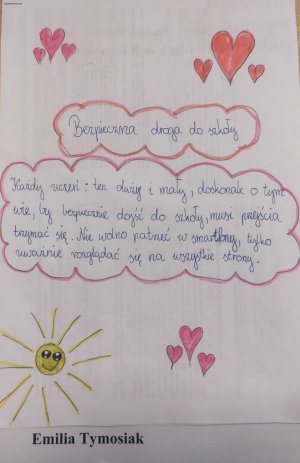 Bezpieczna droga do szkoły
Każdy uczeń: ten duży i mały, doskonale o tym
wie, by bezpiecznie dojść do szkoły, musi przejścia
trzymać się. Nie wolno patrzeć w smartfony, tylko
uważnie rozglądać się na wszystkie strony.
Emilia Tymosiak